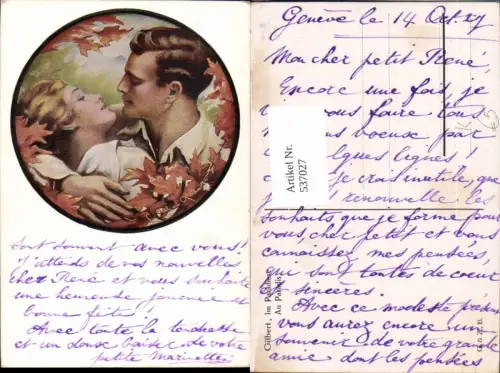 Genève le 14 Oct. 27
Mon cher petit René,
Encore une fois, je
vous faire tous
voeux par
quelques lignes
je crois inutile, que
je renouvelle les
souhaits que je forme pour
vous, cher petit et vous
connaissez mes pensées,
qui sont toutes de coeur
et sincères.
Avec ce modeste présent
vous aurez encore un
souvenir de votre grande
amie dont les pensées
sont souvent avec vous!
J'attends de vos nouvelles
cher René et vous souhaite
une heureuse journée et
bonne fête!
Avec toute la tendresse
et un doux baiser de votre
petite Marinette
Artikel Nr.
537027
Gilbert, Im Paradies
Au Paradis